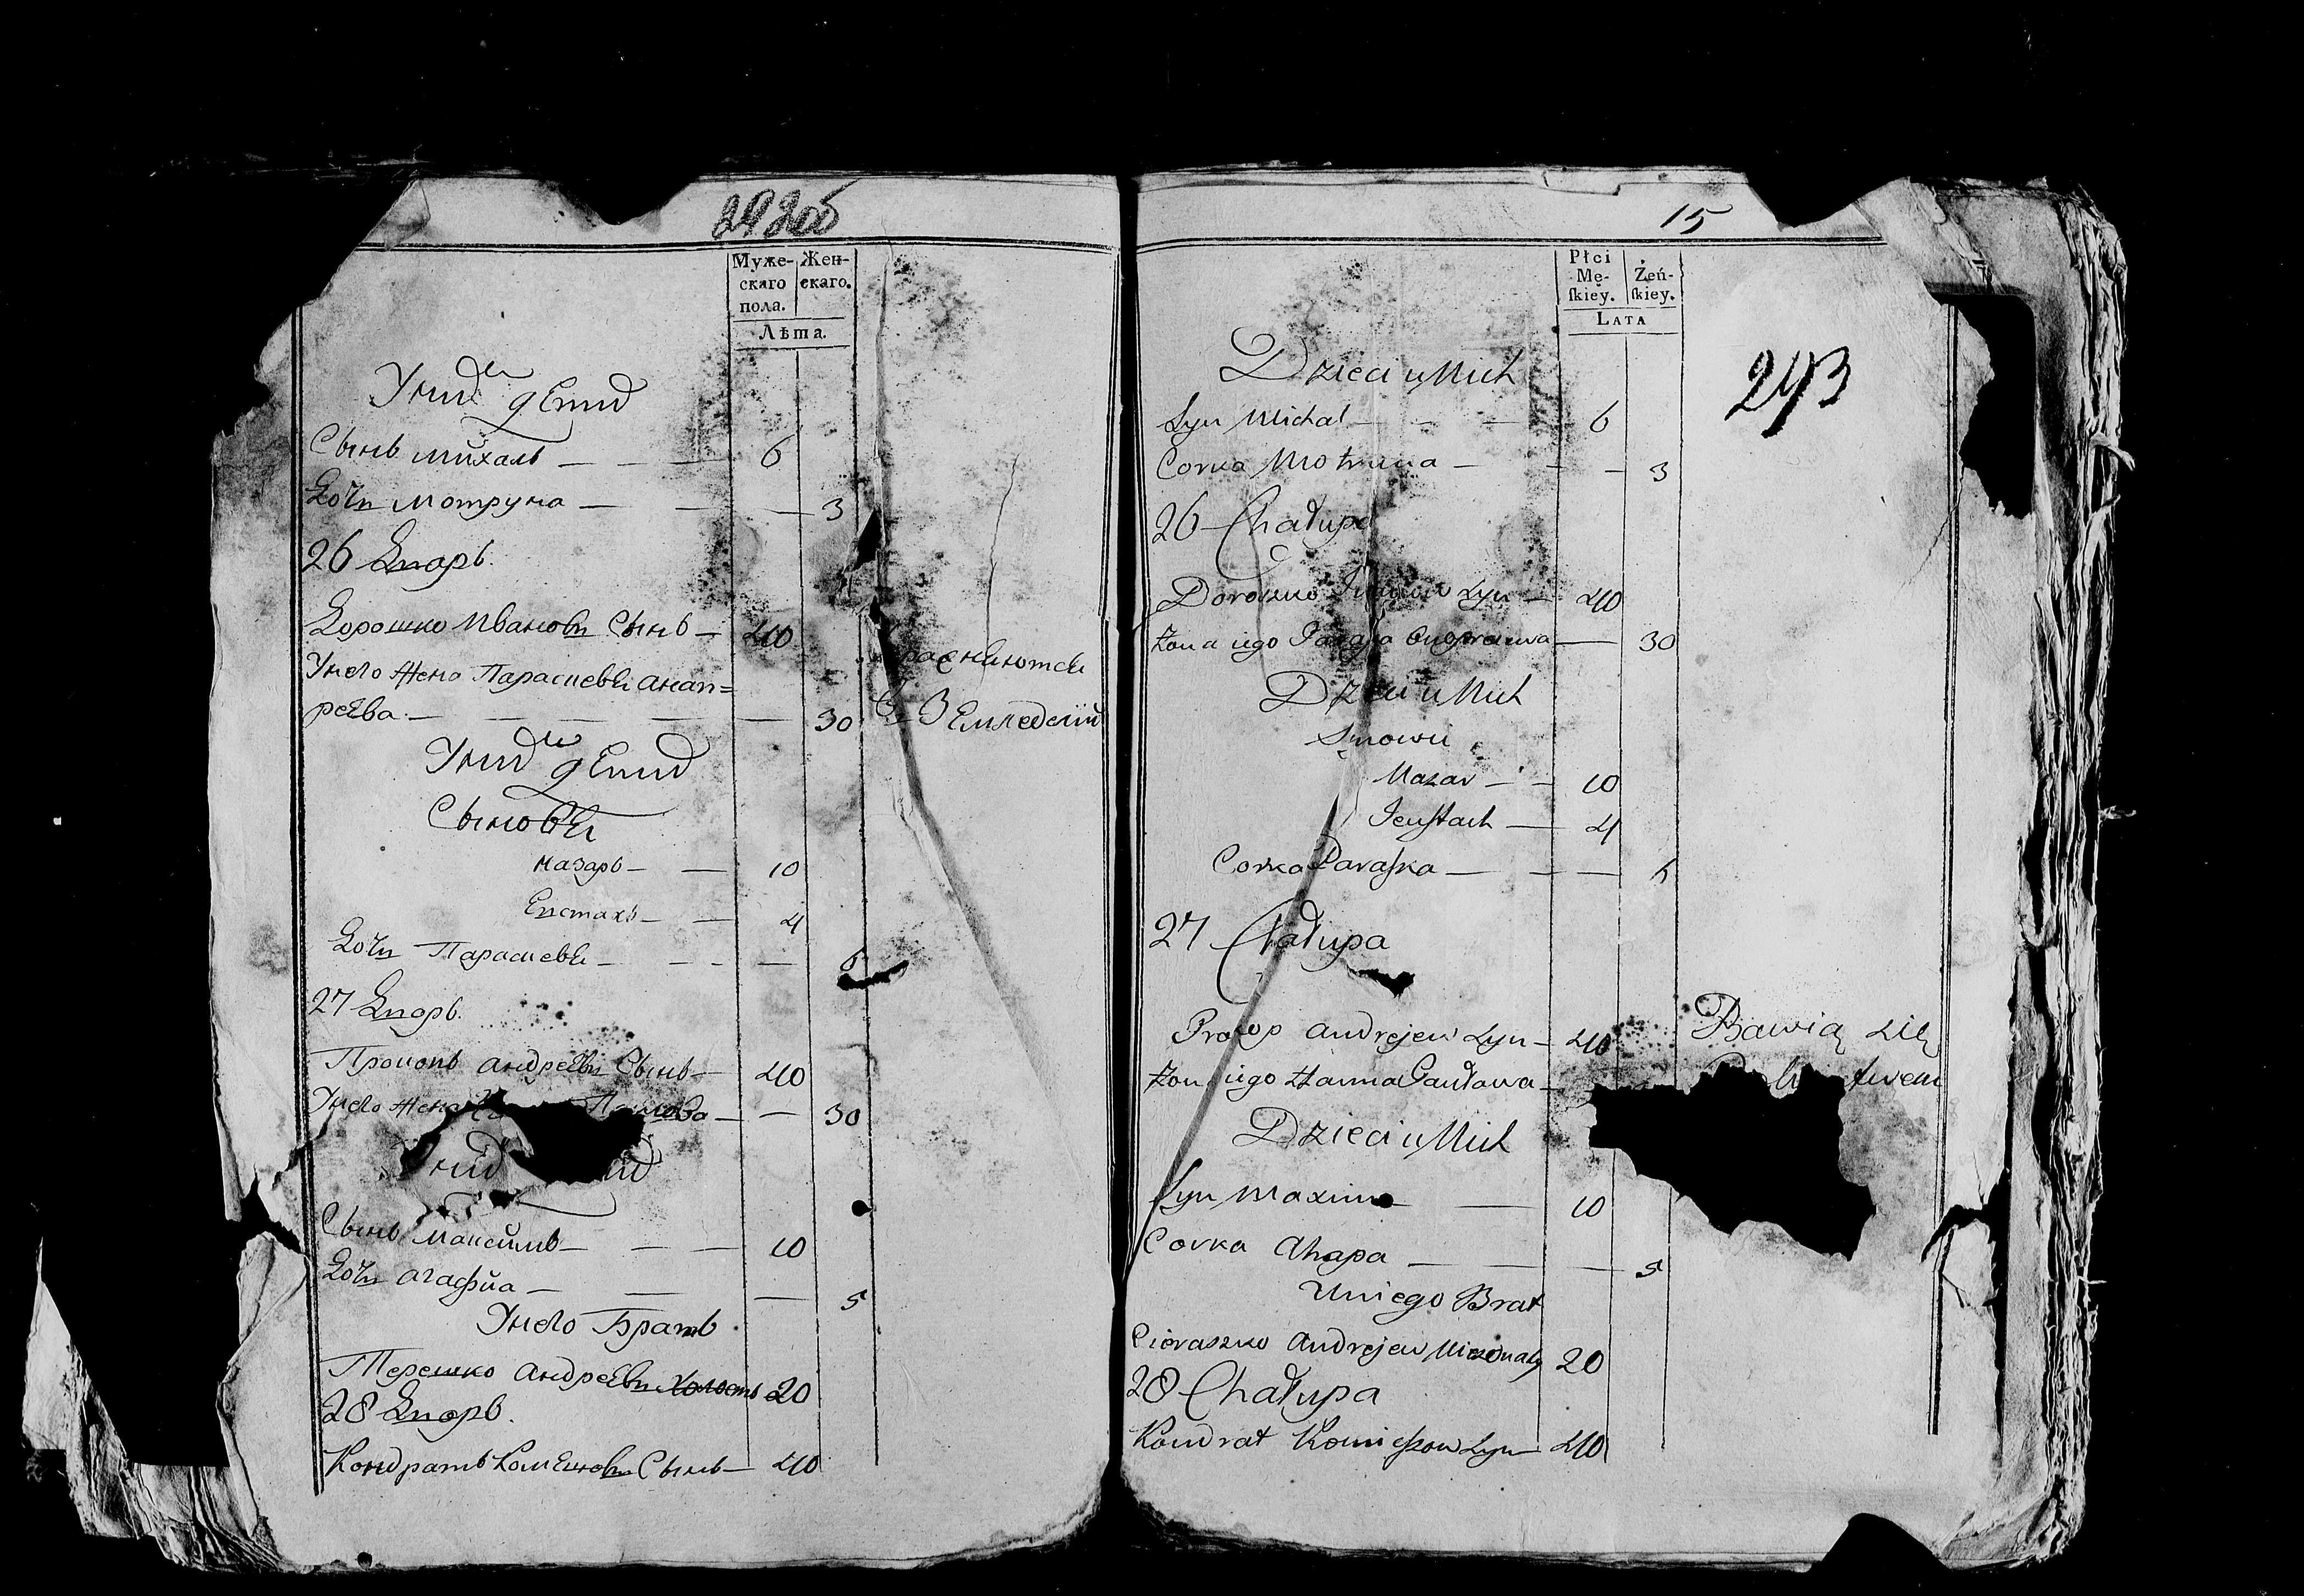 242об
Муже-
скаго
пола.
Жен-
скаго.
Лѣта.
У нихъ дѣти
Сынъ Михаль — — — 6
Дочь Мотруна — — — 3
26 Дворъ.
Дорошко Ивановъ Сынъ — 40
У него жена Параскевія Анд=
реева — — — — — 30
У нихъ дѣти
Сыновья
Назаръ — — 10
Евстахъ — — 4
Дочь Параскевія — — — —
27 Дворъ.
Прокопъ Андреевъ Сынъ — 40
У него жена — — 30
У нихъ
Сынъ Максимъ — — — 10
Дочь Агафія — — — 5
У него Братъ
Терешко Андреевъ Холостъ 20
28 Дворъ.
Кондратъ Сынъ — 40
Землѣдѣліи
15
Płci
Mę-
ſkiey.
Żeń-
ſkiey.
LATA
243
Dzieci u Nich
Syn Michał — — — 6
Corka Motruna — — — 3
26 Chałupa
Doroszko Iwanow Syn — 40
Żona iego — 30
Dzieci u Nich
Synowie
Nazar — — 10
Jeustach — 4
Corka Paraska — — —
27 Chałupa
Prokop Andrejew Syn — 40
Bawią się
Żona iego Hanna Pawłowa —
Dzieci u Nich
Syn Maxim — — 10
Corka Ahapa — — — 5
U niego Brat
Cieraszko Andrejew Nieżonaty 20
28 Chałupa
Kondrat Syn — 40